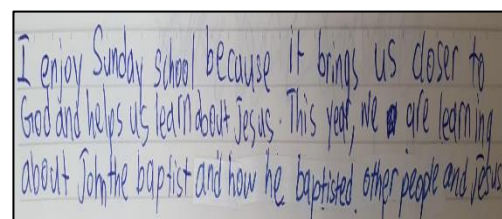 I enjoy Sunday school because it brings us closer to
God and helps us learn about Jesus. This year, we are learning
about John the baptist and how he baptisted other people and Jesus